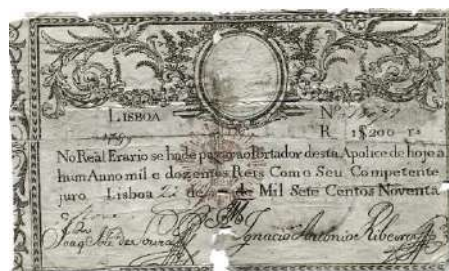 LISBOA Nº
R 1$200 rs
No Real Erario se hade pagar ao Portador desta Apolice de hoje a
hum Anno mil e dozentos Reis Com o Seu Competente
juro. Lisboa 22 de de Mil Sete Centos Noventa
Ignacio Antonio Ribeiro